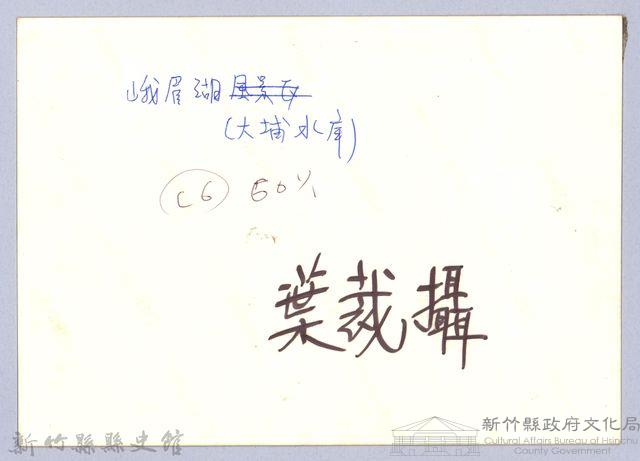 峨眉湖風景
(大埔水庫)
C6 50%
葉裁攝
新竹縣縣史館
新竹縣政府文化局
Cultural Affairs Bureau of Hsinchu
County Government